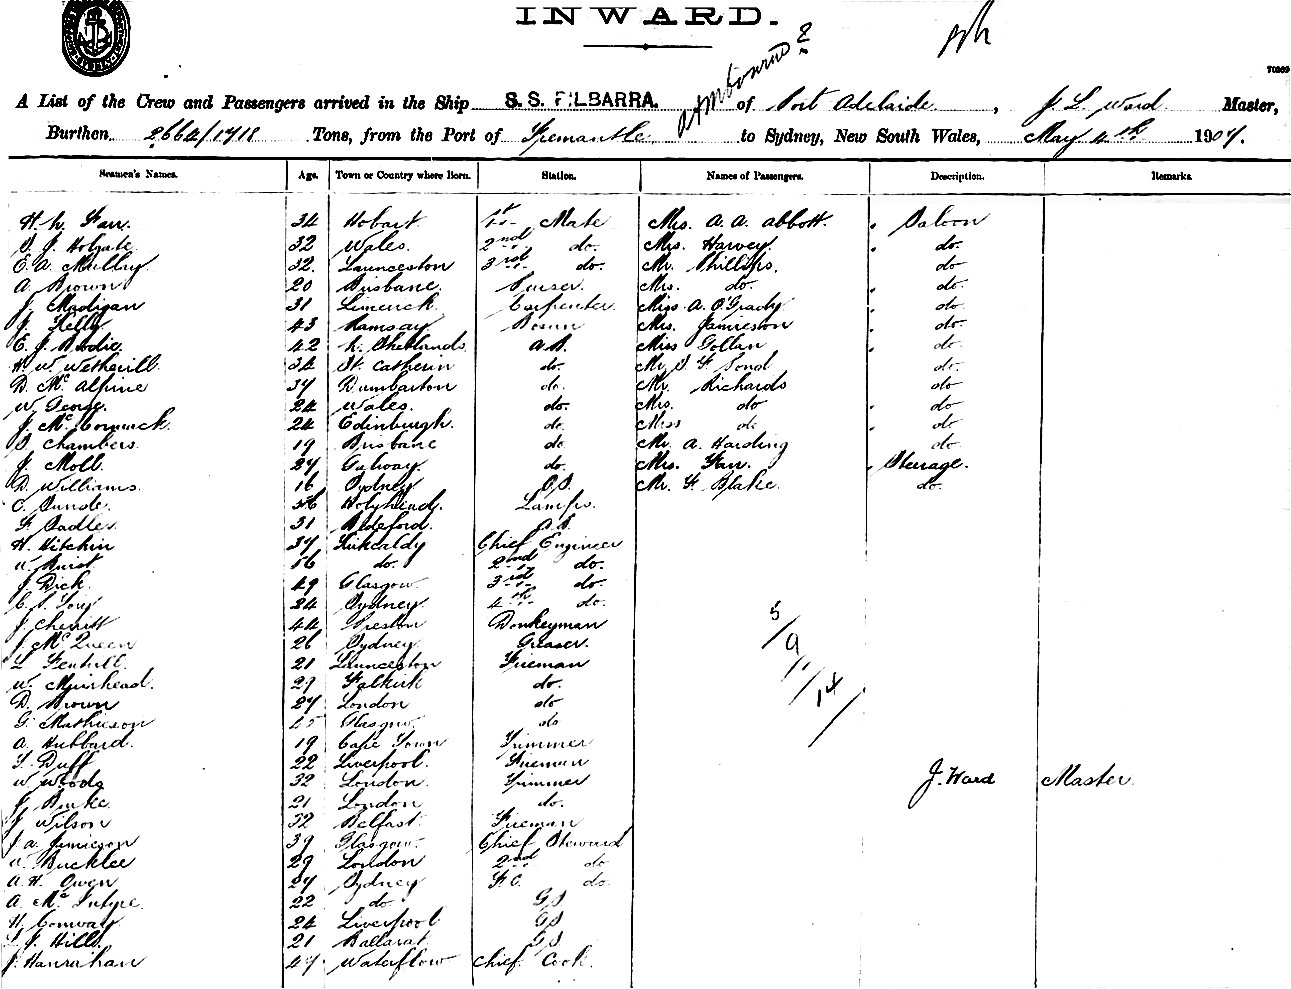 INWARD.
70309
A List of the Crew and Passengers arrived in the Ship S. S. PILBARRA. of Port Adelaide, J. L. Ward Master,
Burthen 2664/1718 Tons, from the Port of Fremantle to Sydney, New South Wales, May 4th 1907.
Seamen's Names. Age. Town or Country where Born. Station. Names of Passengers. Description. Remarks.
Farr 34 Hobart 1st Mate Mrs. A. A. Abbott. Saloon
Holgate 32 Wales. 2nd do. Mrs. Harvey. do.
E. A. Mulby. 32. Launceston 3rd do. Mr. Phillips. do
A. Brown 20 Brisbane. Purser. Mrs. do. do
J. Madigan 31 Limerick. Carpenter. Miss A. O'Grady do.
J. Kelly 43 Ramsay Bosun Mrs. Jamieson do.
E. J. Brodie 42 N. Shetlands A.B. Miss Gollan do.
H. W. Wetherill. 34 St. Catherin do. Mr. S. F. Pond do.
D. McAlpine 37 Dumbarton do. Mr. Richards do
W. George. 24 Wales. do. Mrs. do do
J. McCormick. 24 Edinburgh. do. Miss do do
Chambers. 19 Brisbane do Mr. A. Harding do.
J. Moll. 27 Galway. do. Mrs. Farr. Steerage.
D. Williams. 16 Sydney O.S. Mr. F. Blake. do.
56 Holyhead. Lamps.
Sadler. 31 Bideford. A.B.
H. Hitchin 37 Kirkcaldy Chief Engineer
56 do. 2nd do.
J. Dick 49 Glasgow. 3rd do.
24 Sydney 4th do.
J. Cherritt 44 Preston Donkeyman
J. McQueen 26 Sydney Greaser.
L. 21 Launceston Fireman
W. Muirhead. 29 Falkirk do.
D. Brown 27 London do
G. Mathieson Glasgow do
A. Hubbard. 19 Cape Town Trimmer
Duff 22 Liverpool. Fireman
W. Woods 32 London. Trimmer J. Ward Master.
J. Burke. 21 London do.
J. Wilson 32 Belfast. Fireman
J. A. Jamieson 39 Glasgow. Chief Steward
Bucklee 29 London 2nd do
A. H. Owen 27 Sydney F.C. do.
A. McIntyre. 22 do. G.S
H. Conway 24 Liverpool G.S
J. Hills. 21 Ballarat G.S
J. Hanrahan 47 Waterflow Chief Cook.
5/9/14/